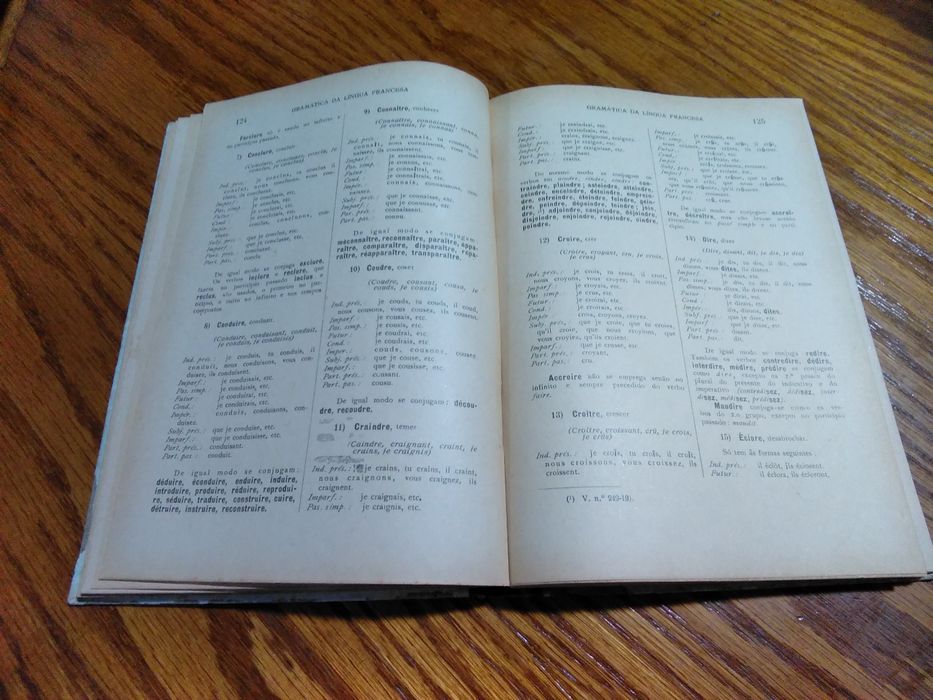 124
GRAMÁTICA DA LÍNGUA FRANCESA
Forclore só é usado no infinito e
no particípio passado.
7) Conclure, concluir
(Conclure, concluant, conclu, je
conclus, je conclus)
Ind. prés.: je conclus, tu conclus, il
conclut, nous concluons, vous con-
cluez, ils concluent.
Imparf.: je concluais, etc.
Pas. simp.: je conclus, etc.
Futur: je conclurai, etc.
Cond.: je conclurais, etc.
Impér.: conclus, concluons, con-
cluez.
Subj. prés.: que je conclue, etc.
Imparf.: que je conclusse, etc.
Part. prés.: concluant
Part. pas.: conclu
De igual modo se conjuga exclure.
Os verbos inclure e reclure, que
fazem no particípio passado inclus e
reclus, são usados, o primeiro no par-
ticípio, o outro no infinito e nos tempos
compostos
8) Conduire, conduzir.
(Conduire, conduisant, conduit,
je conduis, je conduisis)
Ind. prés.: je conduis, tu conduis, il
conduit, nous conduisons, vous con-
duisez, ils conduisent.
Imparf.: je conduisais, etc.
Pas. simp.: je conduisis, etc.
Futur: je conduirai, etc.
Cond.: je conduirais, etc.
Impér.: conduis, conduisons, con-
duisez.
Subj. prés.: que je conduise, etc.
Imparf.: que je conduisisse, etc.
Part. prés.: conduisant.
Part. pas.: conduit
De igual modo se conjugam:
déduire, éconduire, enduire, induire,
introduire, produire, réduire, reprodui-
re, séduire, traduire, construire, cuire,
détruire, instruire, reconstruire.
9) Connaître, conhecer
(Connaître, connaissant, connu,
je connais, je connus)
Ind. prés.: je connais, tu connais, il
connaît, nous connaissons, vous con-
naissez, ils connaissent.
Imparf.: je connaissais, etc.
Pas. simp.: je connus, etc.
Futur: je connaîtrai, etc.
Cond.: je connaîtrais, etc.
Impér.: connais, connaissons, con-
naissez.
Subj. prés.: que je connaisse, etc.
Imparf.: que je connusse, etc.
Part. prés.: connaissant
Part. pas.: connu.
De igual modo se conjugam
méconnaître, reconnaître, paraître, appa-
raître, comparaître, disparaître, repa-
raître, réapparaître, transparaître.
10) Coudre, coser
(Coudre, cousant, cousu, je
couds, je cousis)
Ind. prés.: je couds, tu couds, il coud,
nous cousons, vous cousez, ils cousent.
Imparf.: je cousais, etc.
Pas. simp.: je cousis, etc.
Futur: je coudrai, etc.
Cond.: je coudrais, etc.
Imper.: couds, cousons, cousez
Subj. prés.: que je couse, etc.
Imparf.: que je cousisse, etc.
Part. prés.: cousant.
Part. pas.: cousu.
De igual modo se conjugam: décou-
dre, recoudre.
11) Craindre, temer
(Caindre, craignant, craint,
je crains, je craignis)
Ind. prés.: je crains, tu crains, il craint,
nous craignons, vous craignez, ils
craignent.
Imparf.: je craignais, etc.
Pas. simp.: je craignis, etc.
GRAMÁTICA DA LÍNGUA FRANCESA
125
Futur: je craindrai, etc.
Cond.: je craindrais, etc.
Impér.: crains, craignons, craignez.
Subj. prés.: que je craigne, etc.
Imparf.: que je craignisse, etc.
Part. prés.: craignant.
Part. pas.: craint.
Do mesmo modo se conjugam os
verbos em aindre, eindre, oindre: con-
traindre, plaindre; astreindre, atteindre,
ceindre, enceindre, déteindre, emprein-
dre, enfreindre, éteindre, feindre, gein-
dre, peindre, dépeindre, teindre; join-
dre, (¹) adjoindre, conjoindre, déjoindre,
disjoindre, enjoindre, rejoindre, oindre,
poindre.
12) Croire, crer
(Croire, croyant, cru, je crois,
je crus)
Ind. prés.: je crois, tu crois, il croit,
nous croyons, vous croyez, ils croient.
Imparf.: je croyais, etc.
Pas simp.: je crus, etc.
Futur: je croirai, etc.
Cond.: je croirais, etc.
Impér.: crois, croyons, croyez.
Subj. prés.: que je croie, que tu croies,
qu'il croie, que nous croyions, que
vous croyiez, qu'ils croient.
Imparf.: que je crusse, etc.
Part. prés.: croyant.
Part. pas.: cru.
Accroire não se emprega senão no
infinito e sempre precedido do verbo
faire.
13) Croître, crescer
(Croître, croissant, crû, je croîs,
je crûs)
Ind. prés.: je croîs, tu croîs, il croît,
nous croissons, vous croissez, ils
croissent.
(¹) V. n.º 249-12).
Imparf.: je croissais, etc.
Pas. simp.: je crûs, tu crûs, il crût,
Futur: je croîtrai, etc.
Cond.: je croîtrais, etc.
Impér.: croîs, croissons, croissez.
Subj. prés.: que je croisse, etc.
Part. prés.: croissant.
Part. pas.: crû, crue.
De igual modo se conjugam accroî-
tre, décroître,
14) Dire, dizer
(Dire, disant, dit, je dis, je dis)
Ind. prés.: je dis, tu dis, il dit, nous
disons, vous dites, ils disent.
Imparf.: je disais, etc.
Pas. simp.: je dis, tu dis, il dit, nous
dîmes, vous dîtes, ils dirent.
Futur: je dirai, etc.
Cond.: je dirais, etc.
Impér.: dis, disons, dites.
Subj. prés.: que je dise, etc.
Imparf.: que je disse, etc.
Part. prés.: disant.
Part. pas.: dit.
De igual modo se conjuga redire.
Também os verbos contredire, dédire,
interdire, médire, prédire se conjugam
como dire, excepto na 2.ª pessoa do
plural do presente do indicativo e do
imperativo (contredisez, dédisez, inter-
disez, médisez, prédisez).
Maudire conjuga-se como os ver-
bos do 2.º grupo, excepto no particípio
passado: maudit.
15) Éclore, desabrochar.
Só tem as formas seguintes:
Ind. prés.: il éclôt, ils éclosent.
Futur: il éclora, ils écloront.